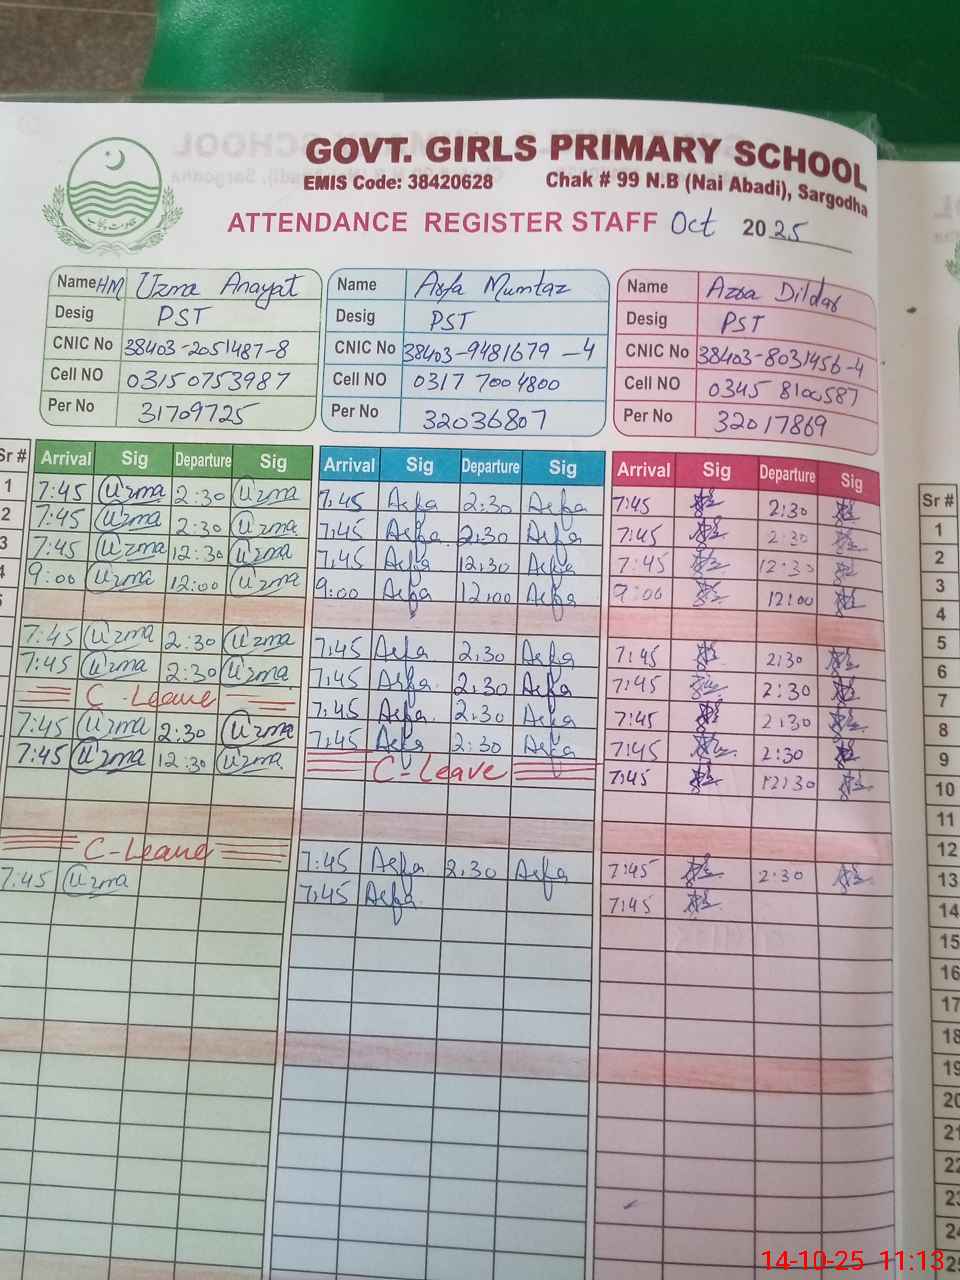 GOVT. GIRLS PRIMARY SCHOOL
EMIS Code: 38420628 Chak # 99 N.B (Nai Abadi), Sargodha
ATTENDANCE REGISTER STAFF Oct 2025
Name HM Uzma Anayat
Desig PST
CNIC No 38403-2051487-8
Cell NO 03150753987
Per No 31709725
Name Asfa Mumtaz
Desig PST
CNIC No 38403-9481679-4
Cell NO 0317 7004800
Per No 32036807
Name Azra Dildar
Desig PST
CNIC No 38403-8031456-4
Cell NO 0345 8100587
Per No 32017869
Sr # Arrival Sig Departure Sig Arrival Sig Departure Sig Arrival Sig Departure Sig
1 7:45 Uzma 2:30 Uzma 7:45 Asfa 2:30 Asfa 7:45 2:30
2 7:45 Uzma 2:30 Uzma 7:45 Asfa 2:30 Asfa 7:45 2:30
3 7:45 Uzma 12:30 Uzma 7:45 Asfa 12:30 Asfa 7:45 12:30
4 9:00 Uzma 12:00 Uzma 9:00 Asfa 12:00 Asfa 9:00 12:00
5
7:45 Uzma 2:30 Uzma 7:45 Asfa 2:30 Asfa 7:45 2:30
7:45 Uzma 2:30 Uzma 7:45 Asfa 2:30 Asfa 7:45 2:30
C-Leave 7:45 Asfa 2:30 Asfa 7:45 2:30
7:45 Uzma 2:30 Uzma 7:45 Asfa 2:30 Asfa 7:45 2:30
7:45 Uzma 12:30 Uzma C-Leave 7:45 12:30
C-Leave 7:45 Asfa 2:30 Asfa 7:45 2:30
7:45 Uzma 7:45 Asfa 7:45
Sr #
1
2
3
4
5
6
7
8
9
10
11
12
13
14
15
16
17
18
19
20
21
22
23
24
25
14-10-25 11:13